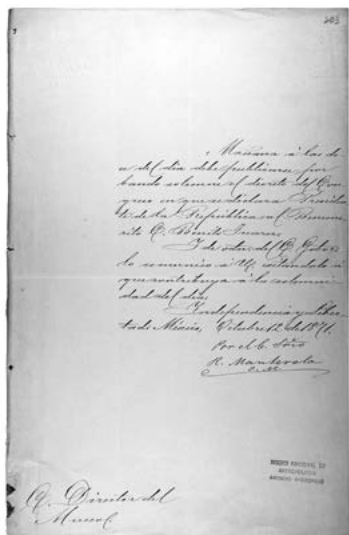 203
Mañana á las do
ce del dia debe publicarse por
bando solemne el decreto del Con
greso en que se declara Presiden
te de la República al Benemé
rito C. Benito Juarez.
I de orden del C. Gobr.
lo comunico á U. citándole á
que contribuya á la solemni
dad del dia.
Independencia y Liber
tad. México, Octubre 12 de 1871.
Por el C. Srio
R. Manterola
C. Director del
Museo.
MUSEO NACIONAL DE
ANTROPOLOGIA
ARCHIVO HISTORICO